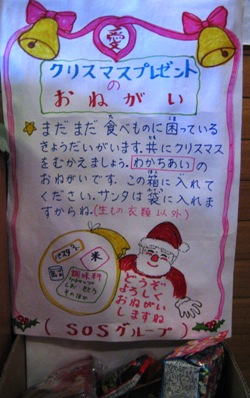 愛
クリスマスプレゼント
の
おねがい
まだまだ食べものに困っている
きょうだいがいます。共にクリスマス
をむかえましょう。わかちあいの
おねがいです。この箱に入れて
ください。サンタは袋に入れ
ますからね。(生もの衣類以外)
米
調味料
その他
どうぞ
よろしく
おねがい
しますね
(SOSグループ)